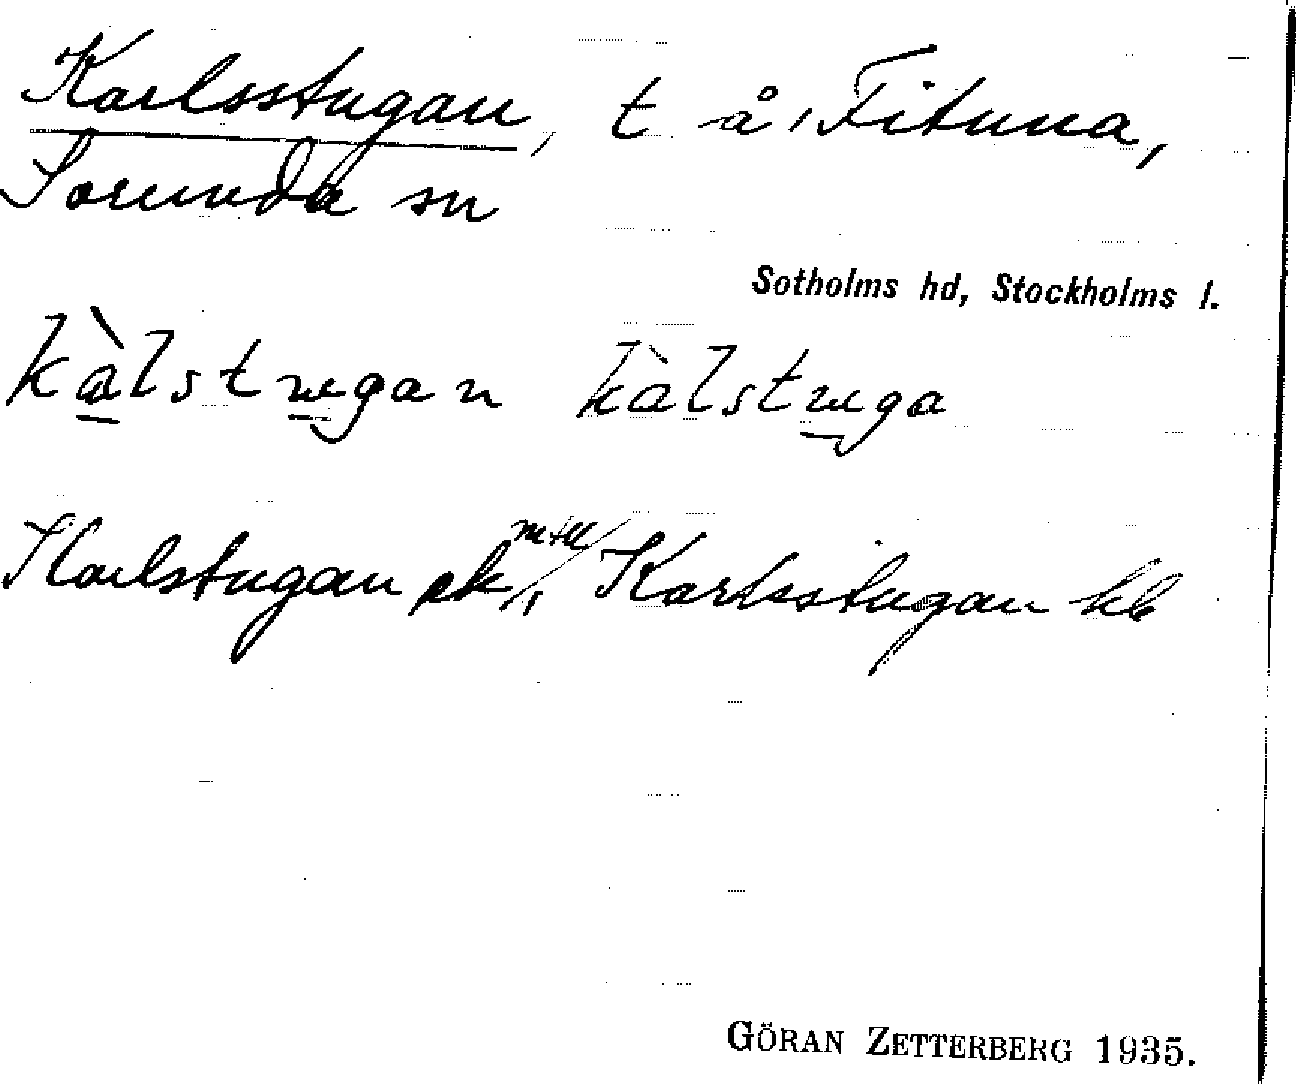 Karlsstugan, t å Fituna,
Sorunda sn
Sotholms hd, Stockholms l.
kàlstugan kàlstuga
Karlstugan ek, Karlsstugan kb
GÖRAN ZETTERBERG 1935.